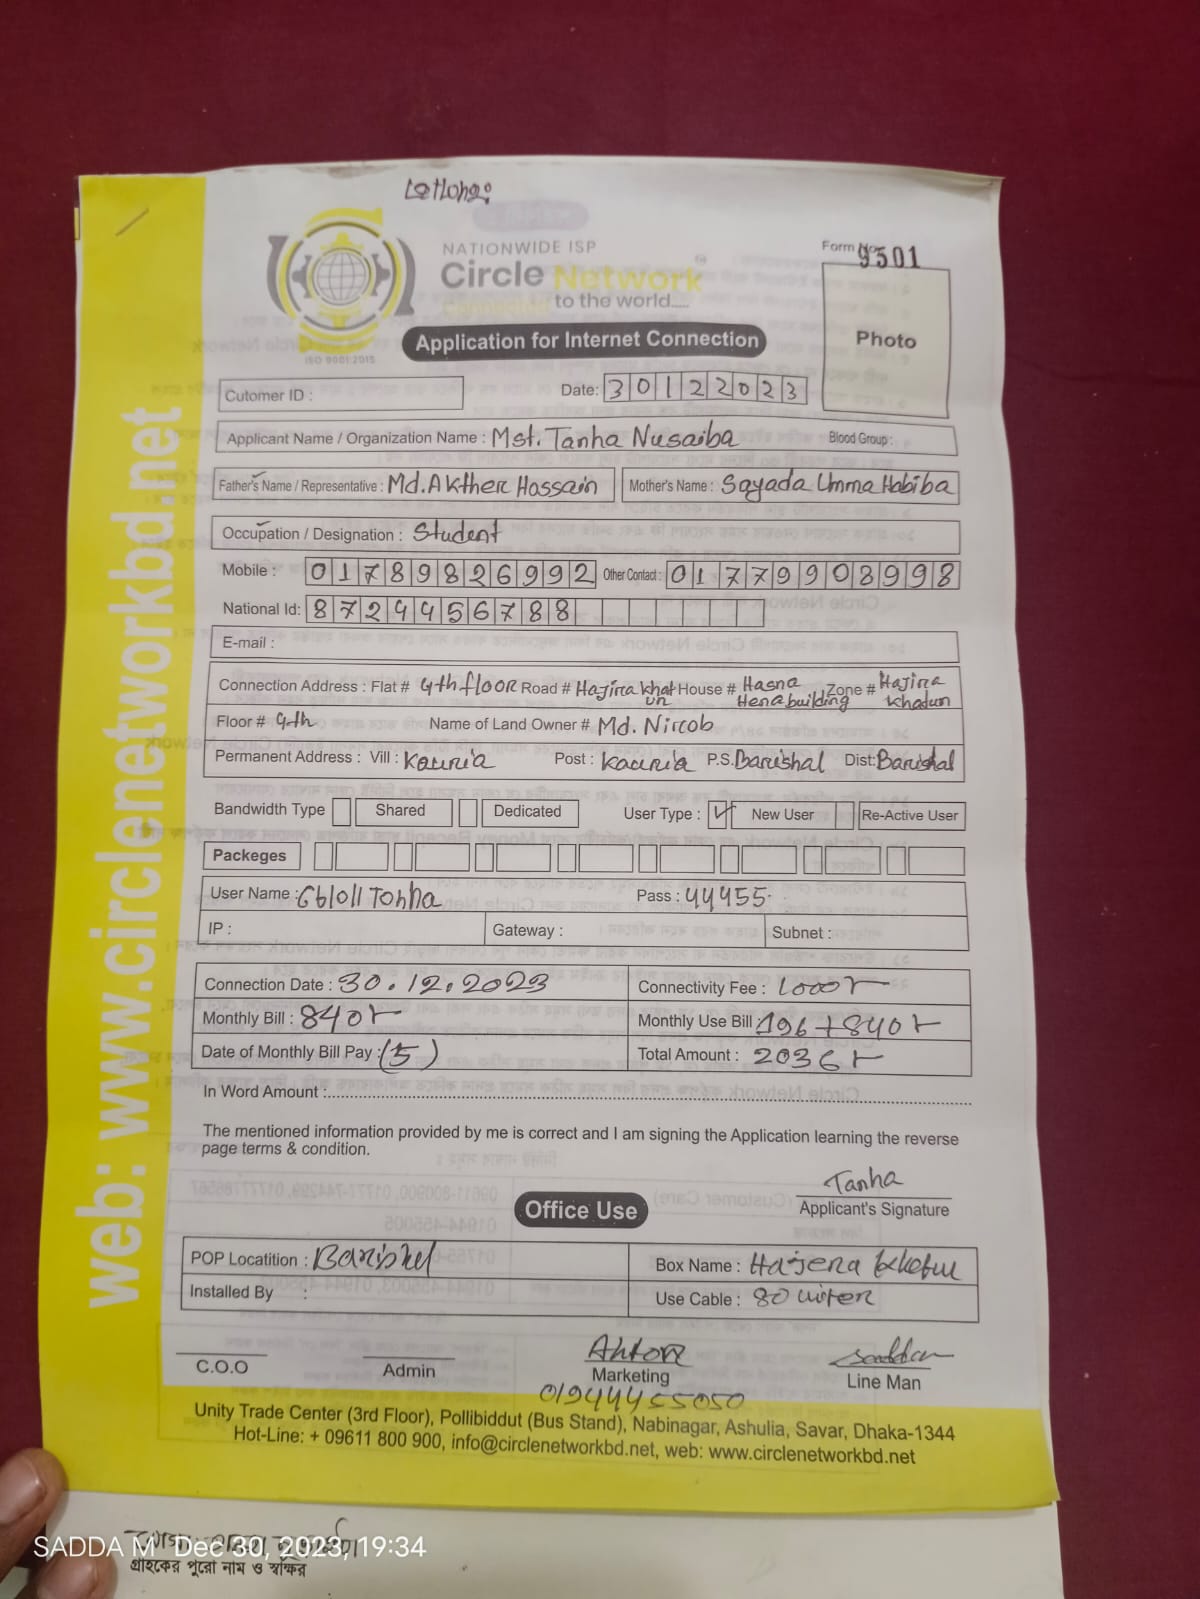 NATIONWIDE ISP
Circle Network
Connected to the world.....
ISO 9001:2015
Form No. 9501
Photo
Application for Internet Connection
Cutomer ID :
Date: 30122023
Applicant Name / Organization Name : Mst. Tanha Nusaiba Blood Group :
Father's Name / Representative : Md. Akther Hossain Mother's Name : Sayada Umma Habiba
Occupation / Designation : Student
Mobile : 01789826992 Other Contact : 01779908998
National Id: 8724456788
E-mail :
Connection Address : Flat # 4th floor Road # Hajira khatun House # Hasna Hena building Zone # Hajira Khatun
Floor # 4th Name of Land Owner # Md. Nirob
Permanent Address : Vill : Kaunia Post : Kaunia P.S. Barishal Dist: Barishal
Bandwidth Type Shared Dedicated User Type : ✓ New User Re-Active User
Packeges
User Name : Pass : 44455
IP : Gateway : Subnet :
Connection Date : 30.12.2023 Connectivity Fee : 1000
Monthly Bill : 840 Monthly Use Bill : 196+840
Date of Monthly Bill Pay : (5) Total Amount : 2036
In Word Amount :
The mentioned information provided by me is correct and I am signing the Application learning the reverse
page terms & condition.
Tanha
Applicant's Signature
Office Use
POP Locatition : Barishal Box Name : Hajera
Installed By : Use Cable : 80 miter
C.O.O
Admin
Marketing
01944455050
Line Man
Unity Trade Center (3rd Floor), Pollibiddut (Bus Stand), Nabinagar, Ashulia, Savar, Dhaka-1344
Hot-Line: + 09611 800 900, info@circlenetworkbd.net, web: www.circlenetworkbd.net
web: www.circlenetworkbd.net
SADDA M Dec 30, 2023, 19:34
গ্রাহকের পুরো নাম ও স্বাক্ষর